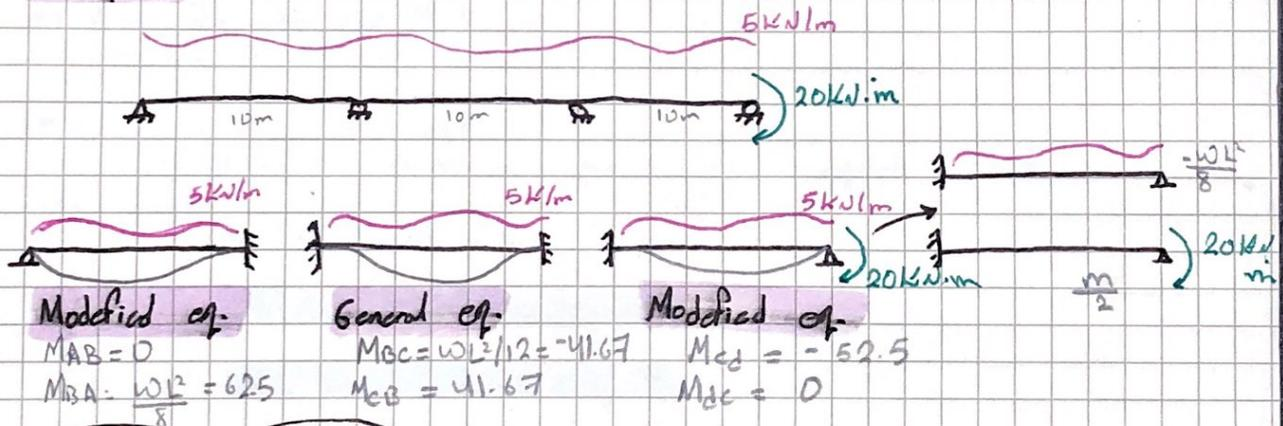 5KN/m
20KN.m
10m 10m 10m
5KN/m 5K/m 5KN/m
-WL²/8
20KN.m
20KN
m
m/2
Modefied eq.
MAB = 0
MBA = WL²/8 = 625
General eq.
MBC = WL²/12 = -41.67
MCB = 41.67
Modefied eq.
Mcd = - 52.5
Mdc = 0